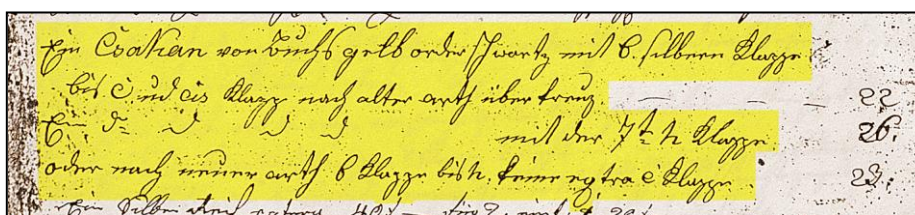 Ein Csakan von Buchs gelb order schwartz mit 6. silbern Klappe
bis C und cis Klapp nach alter arth über kreuz. — — — 22
Ein d= d d d mit der 7t h Klappe. 26.
oder nach neuer arth 6 Klappe bis h. keine extra c Klappe. 23.